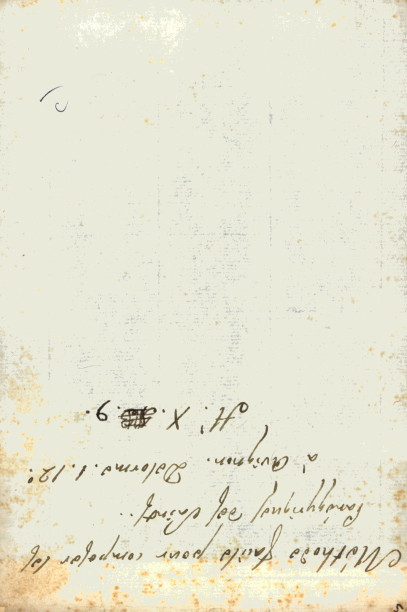 Méthode facile pour composer les
panégyriques des saints.
à Avignon. Delorme. 1. 12°.
H. X. 9.